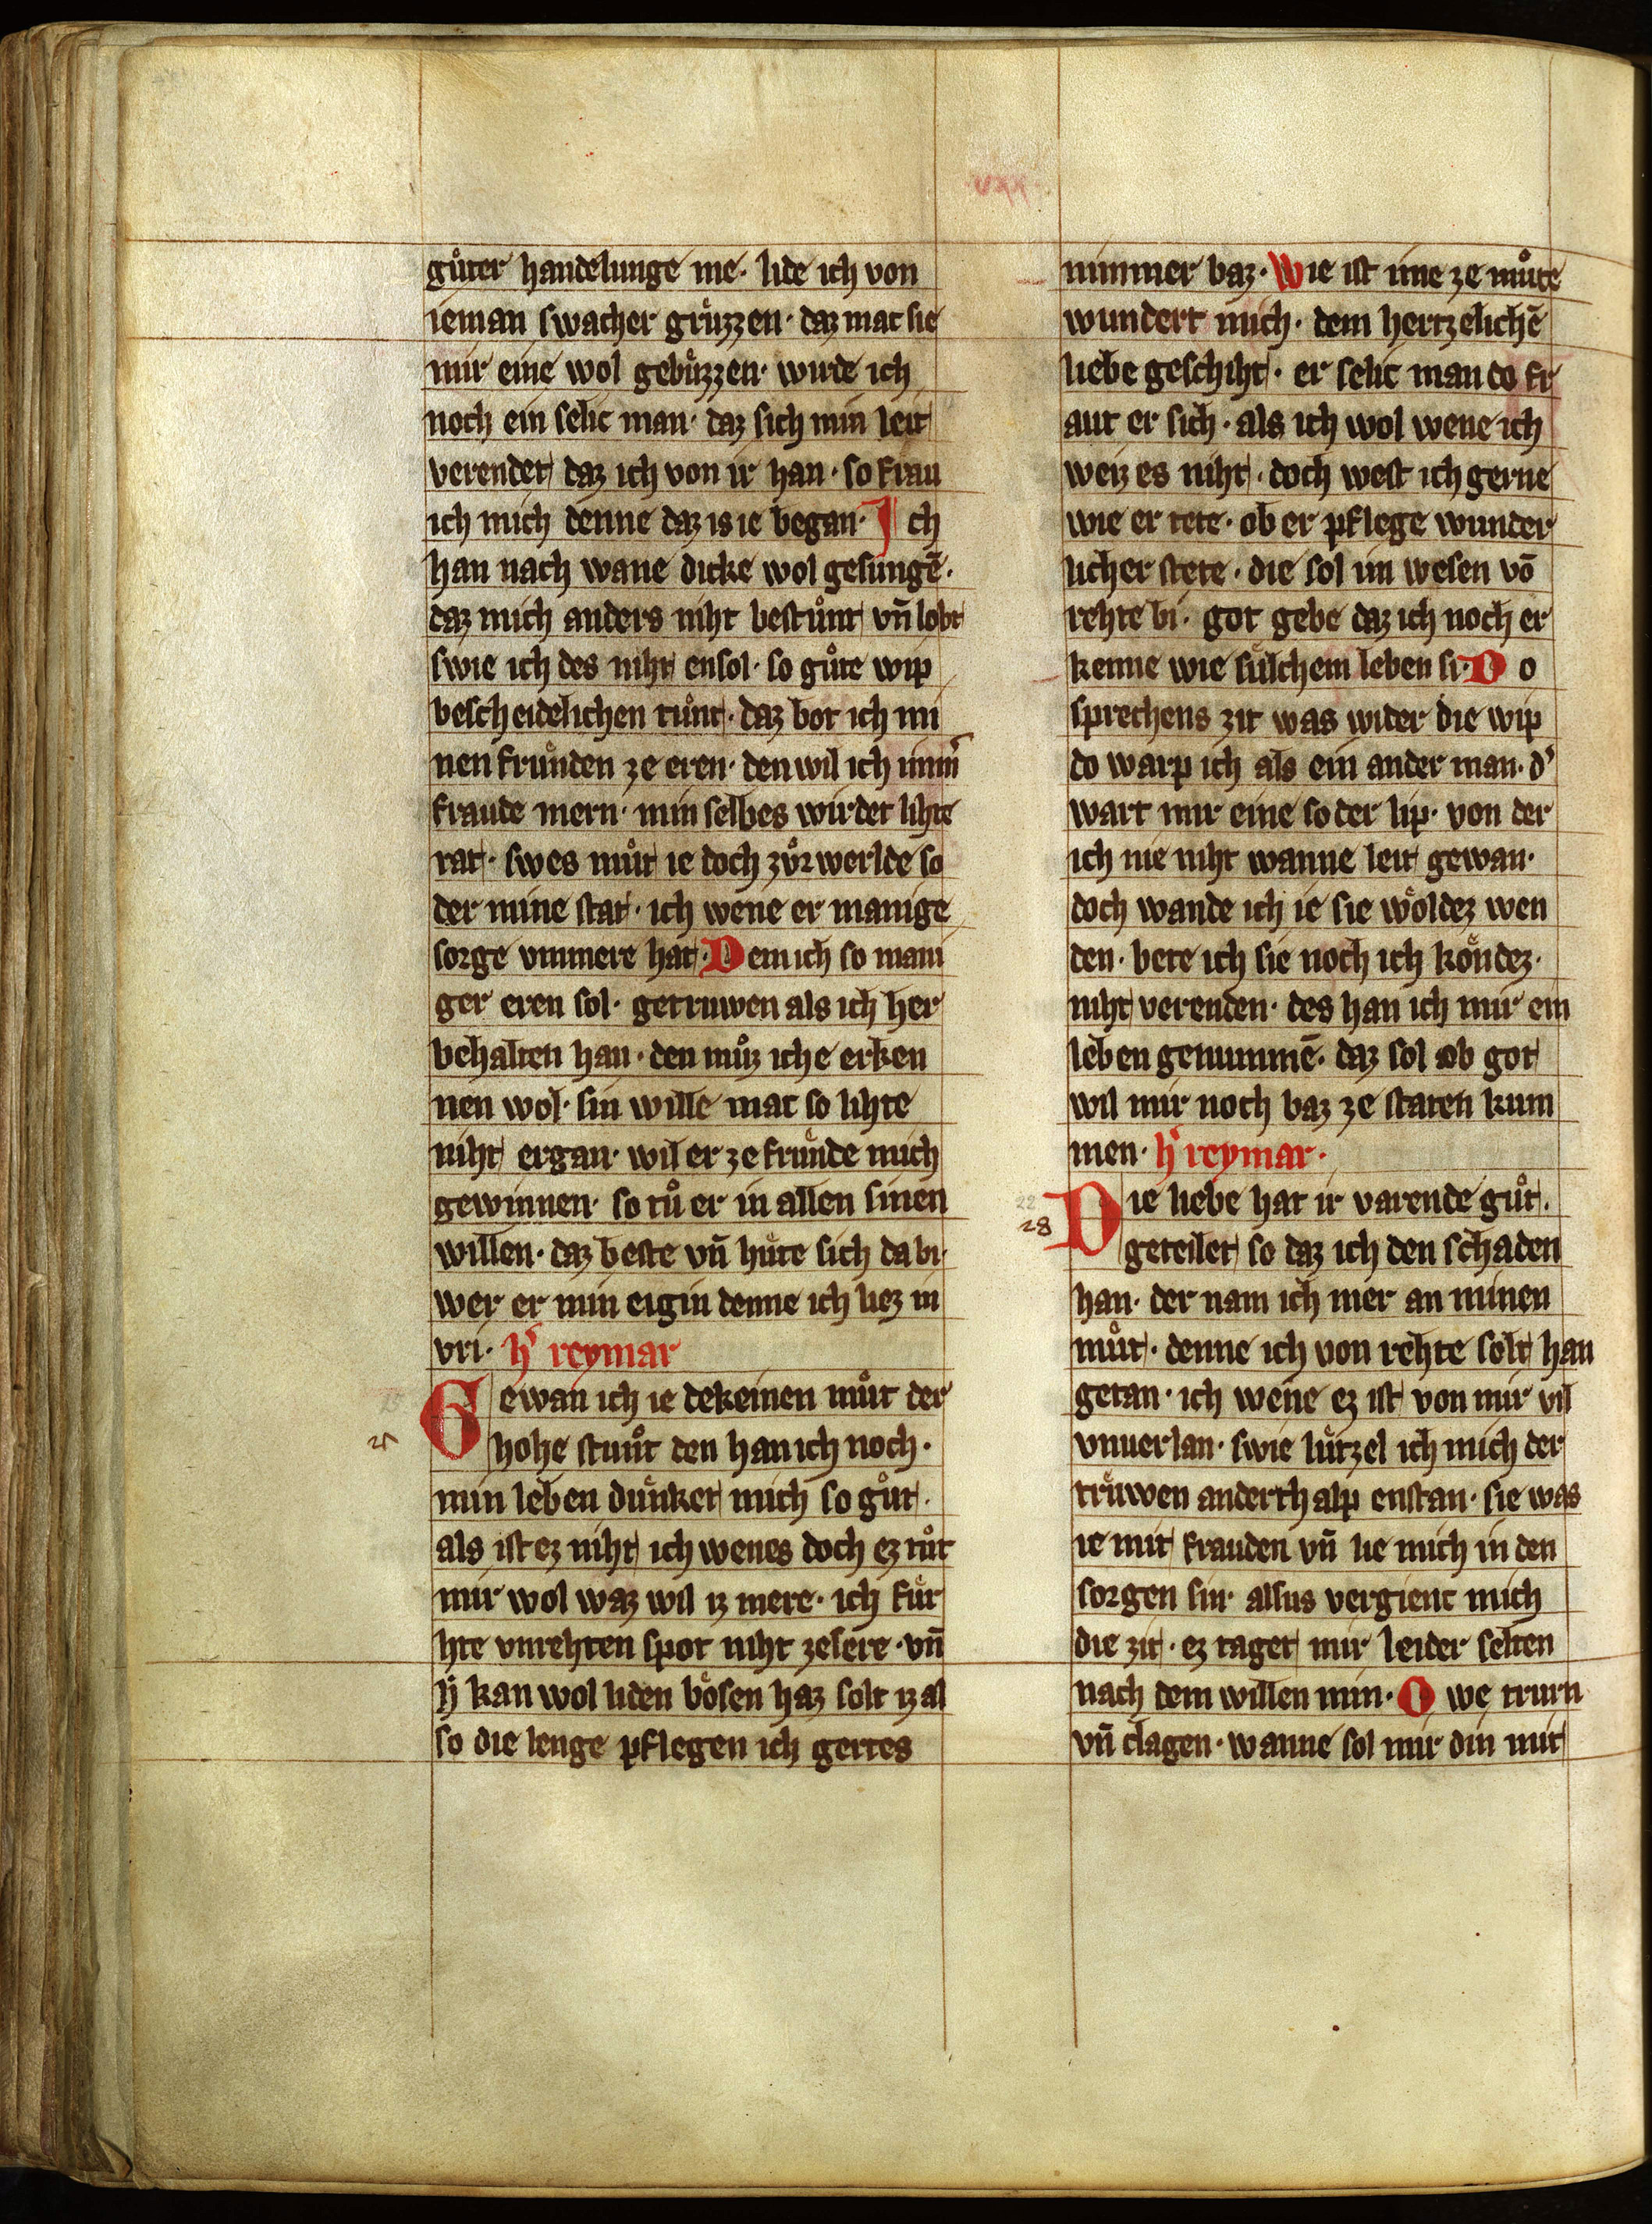 guͦter handelunge me· lide ich von
ieman swacher gruͤzzen· daz mac sie
mir eine wol gebuͤzzen· wirde ich
noch ein selic man· daz sich min leit
verendet daz ich von ir han· so frau
ich mich denne daz is ie began· Ich
han nach wane dicke wol gesungē·
daz mich anders niht bestuͦnt vn̄ lobt
swie ich des niht ensol· so guͦte wip
bescheidelichen tuͦnt· daz bot ich mi
nen fruͤnden ze eren· den wil ich imm͛
fraude mern· min selbes wirdet lihte
rat· swes muͦt ie doch zuͦr werlde so
der mine stat· ich wene er manige
sorge vnmere hat· Dem ich so mani
ger eren sol· getruwen als ich her
behalten han· den muͦz ich e erken
nen wol· sin wille mac so lihte
niht ergan· wil er ze fruͤnde mich
gewinnen· so tuͦ er in allen sinen
willen· daz beste vn̄ huͤte sich da bi·
wer er min eigin denne ich liez in
vri· h͛ reymar
Gewan ich ie dekeinen muͦt der
hohe stuͦnt den han ich noch·
min leben duͤnket mich so guͦt·
als ist ez niht ich wenes doch ez tuͦt
mir wol waz wil iz mere· ich fuͤr
hte vnrehten spot niht ze sere· vn̄
kan wol liden boͤsen haz solt iz al
so die lenge pflegen ich gertes
nimmer baz· Wie ist ime ze muͦte
wundert mich· dem hertzelichē
liebe geschiht· er selic man do fr
aut er sich· als ich wol wene ich
weiz es niht· doch west ich gerne
wie er tete· ob er pflege wunder
licher stete· die sol im wesen vō
rehte bi· got gebe daz ich noch er
kenne wie suͤlchem leben si· Do
sprechens zit was wider die wip
do warp ich als ein ander man· d͛
wart mir eine so der lip· von der
ich nie niht wanne leit gewan·
doch wande ich ie sie woͤldez wen
den· bete ich sie noch ich koͤndez·
niht verenden· des han ich mir ein
leben genummē· daz sol ob got
wil mir noch baz ze staten kum
men· h͛ reymar·
28
Die liebe hat ir varende guͦt·
geteilet so daz ich den schaden
han· der nam ich mer an minen
muͦt· denne ich von rehte solt han
getan· ich wene ez ist von mir vil
vnuerlan· swie luͤtzel ich mich der
truͤwen anderthalp enstan· sie was
ie mit frauden vn̄ lie mich in den
sorgen sin· alsus vergienc mich
die zit· ez taget mir leider selten
nach dem willen min· O we trurn
vn̄ clagen· wanne sol mir din mit